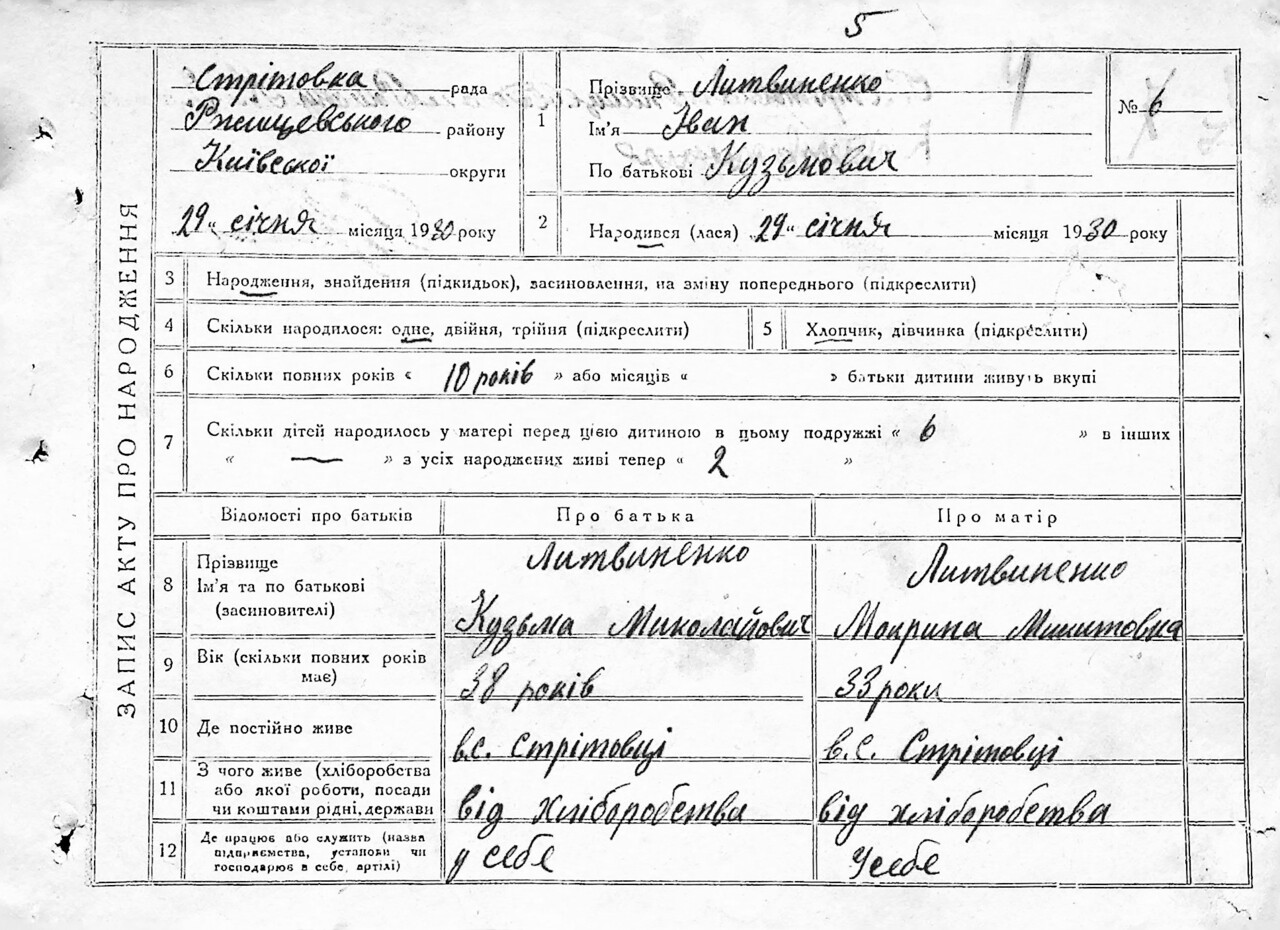 5
Стрітовка рада
Ржищевського району
Київської округи
29 „ січня місяця 1930 року
1 Прізвище Литвиненко
Ім'я Іван
По батькові Кузьмович
№ 6
2 Народився (лася) 29 „ січня місяця 1930 року
ЗАПИС АКТУ ПРО НАРОДЖЕННЯ
3 Народження, знайдення (підкидьок), засиновлення, на зміну попереднього (підкреслити)
4 Скільки народилося: одне, двійня, трійня (підкреслити)
5 Хлопчик, дівчинка (підкреслити)
6 Скільки повних років « 10 років » або місяців « » батьки дитини живуть вкупі
7 Скільки дітей народилось у матері перед цією дитиною в цьому подружжі « 6 » в інших
« — » з усіх народжених живі тепер « 2 »
Відомості про батьків Про батька Про матір
8 Прізвище
Ім'я та по батькові
(засиновителі)
Литвиненко
Кузьма Миколайович
Литвиненко
Мокрина Микитовна
9 Вік (скільки повних років
має)
38 років
33 роки
10 Де постійно живе
в с. Стрітовці
в. с. Стрітовці
11 З чого живе (хліборобства
або якої роботи, посади
чи коштами рідні, держави
від хліборобства
від хліборобства
12 Де працює або служить (назва
підприємства, установи чи
господарює в себе, артілі)
у себе
у себе